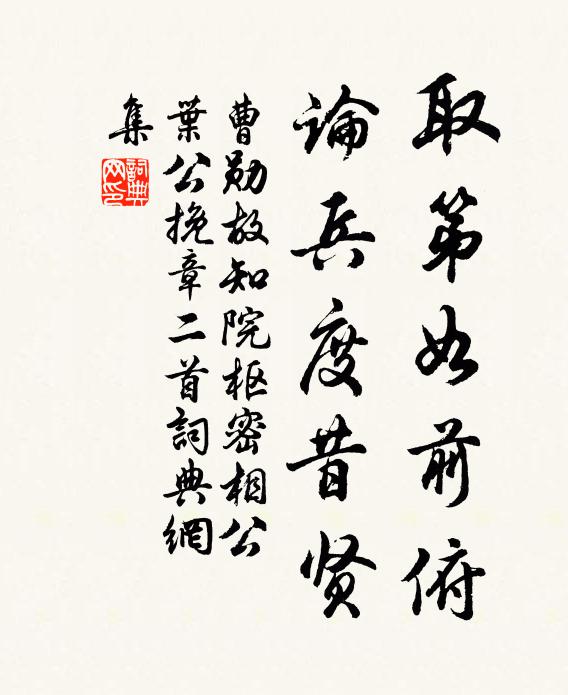 取第如前俯
論兵度昔贤
曹勋故知院枢密相公
葉公挽章二首詞典網
集
詞典
网印